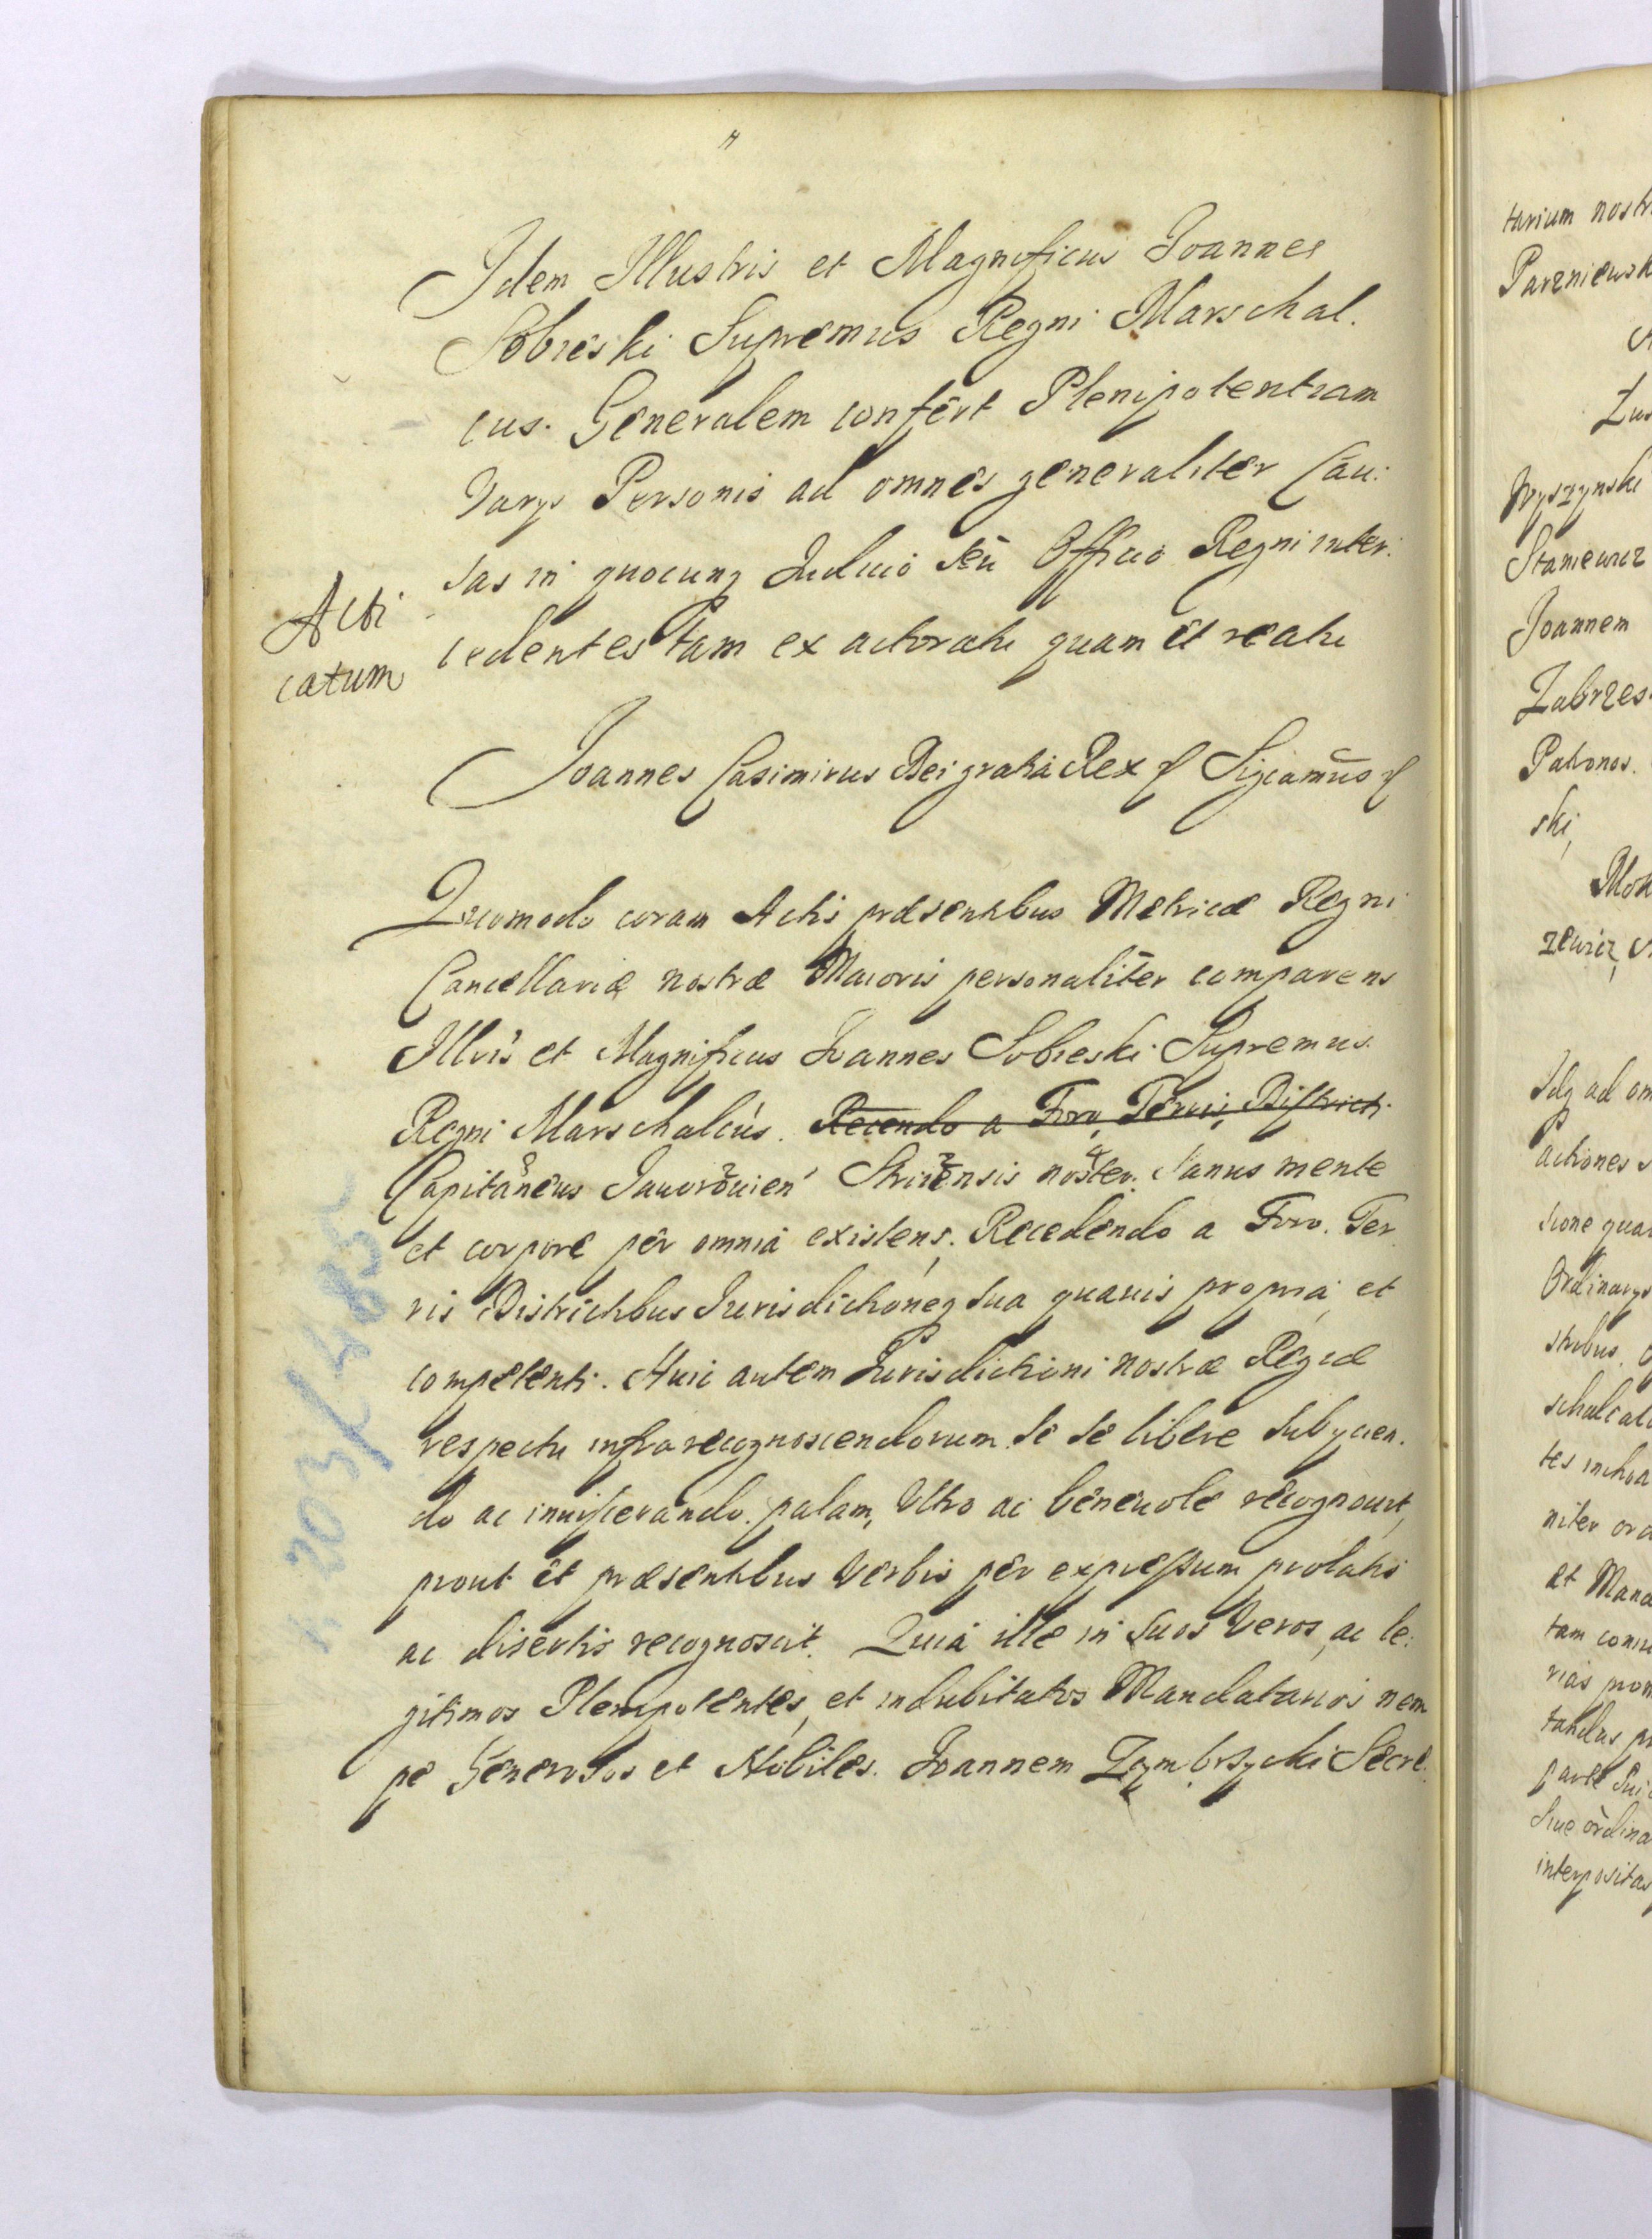 Idem Illustris et Magnificus Joannes
Sobieski Supremus Regni Marschal.
cus. Generalem confert Plenipotentiam
Varys Personis ad omnes generaliter Cau:
sas in quocunq Judicio seu Officio Regni inter:
cedentes tam ex actoratu quam et reatu
Acti
catum
Joannes Casimirus Dei gratia Rex Significamus
Quomodo coram Actis præsentibus Metricæ Regni
Cancellariæ nostræ Maioris personaliter comparens
Illris et Magnificus Joannes Sobieski Supremus.
Regni Marschalcus. Recendo a Foro, Terris, District:
Capitaneus Javorouien' Striiensis noster. Sanus mente
et corpore per omnia existens. Recedendo a Foro. Ter
ris Districtibus Jurisdictioneq sua quauis propria, et
competenti. Huic autem Jurisdictioni nostræ Regiæ
respectu infrarecognoscendorum se se libere subycien.
do ac inuiscerando. palam, Ultro ac beneuole recognouit,
prout et præsentibus Verbis per expressum prolatis
ac disertis recognoscit. Quia ille in suos Veros, ac le:
gitimos Plenipotentes, et indubitatos Mandatarios nem
pe Generosos et Nobiles. Joannem Zembrzycki Secre:
tarium nostr
Parzniewsk
Wyszynski
Staniewicz
Joannem
Zabrzes
Patronos.
ski,
zewicz,
Idq ad om
actiones
sione quar
Ordinarys
stribus.
schalcal
tes inchoa
niter ord
et Mand
tam comm
rias prom
tandas pr
parte Sui
Siue ordina
interpositas